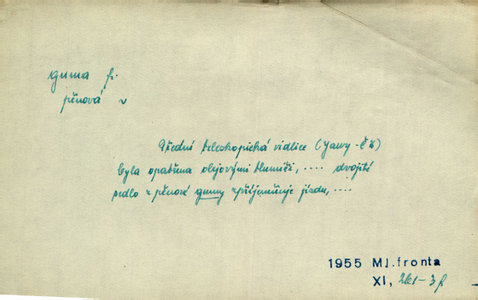 guma f.
pěnová v
Přední teleskopická vidlice (Jawy - ČZ)
byla opatřena olejovými tlumiči, .... dvojité
sedlo z pěnové gumy zpříjemňuje jízdu, ....
1955 Ml.fronta
XI, 261-3